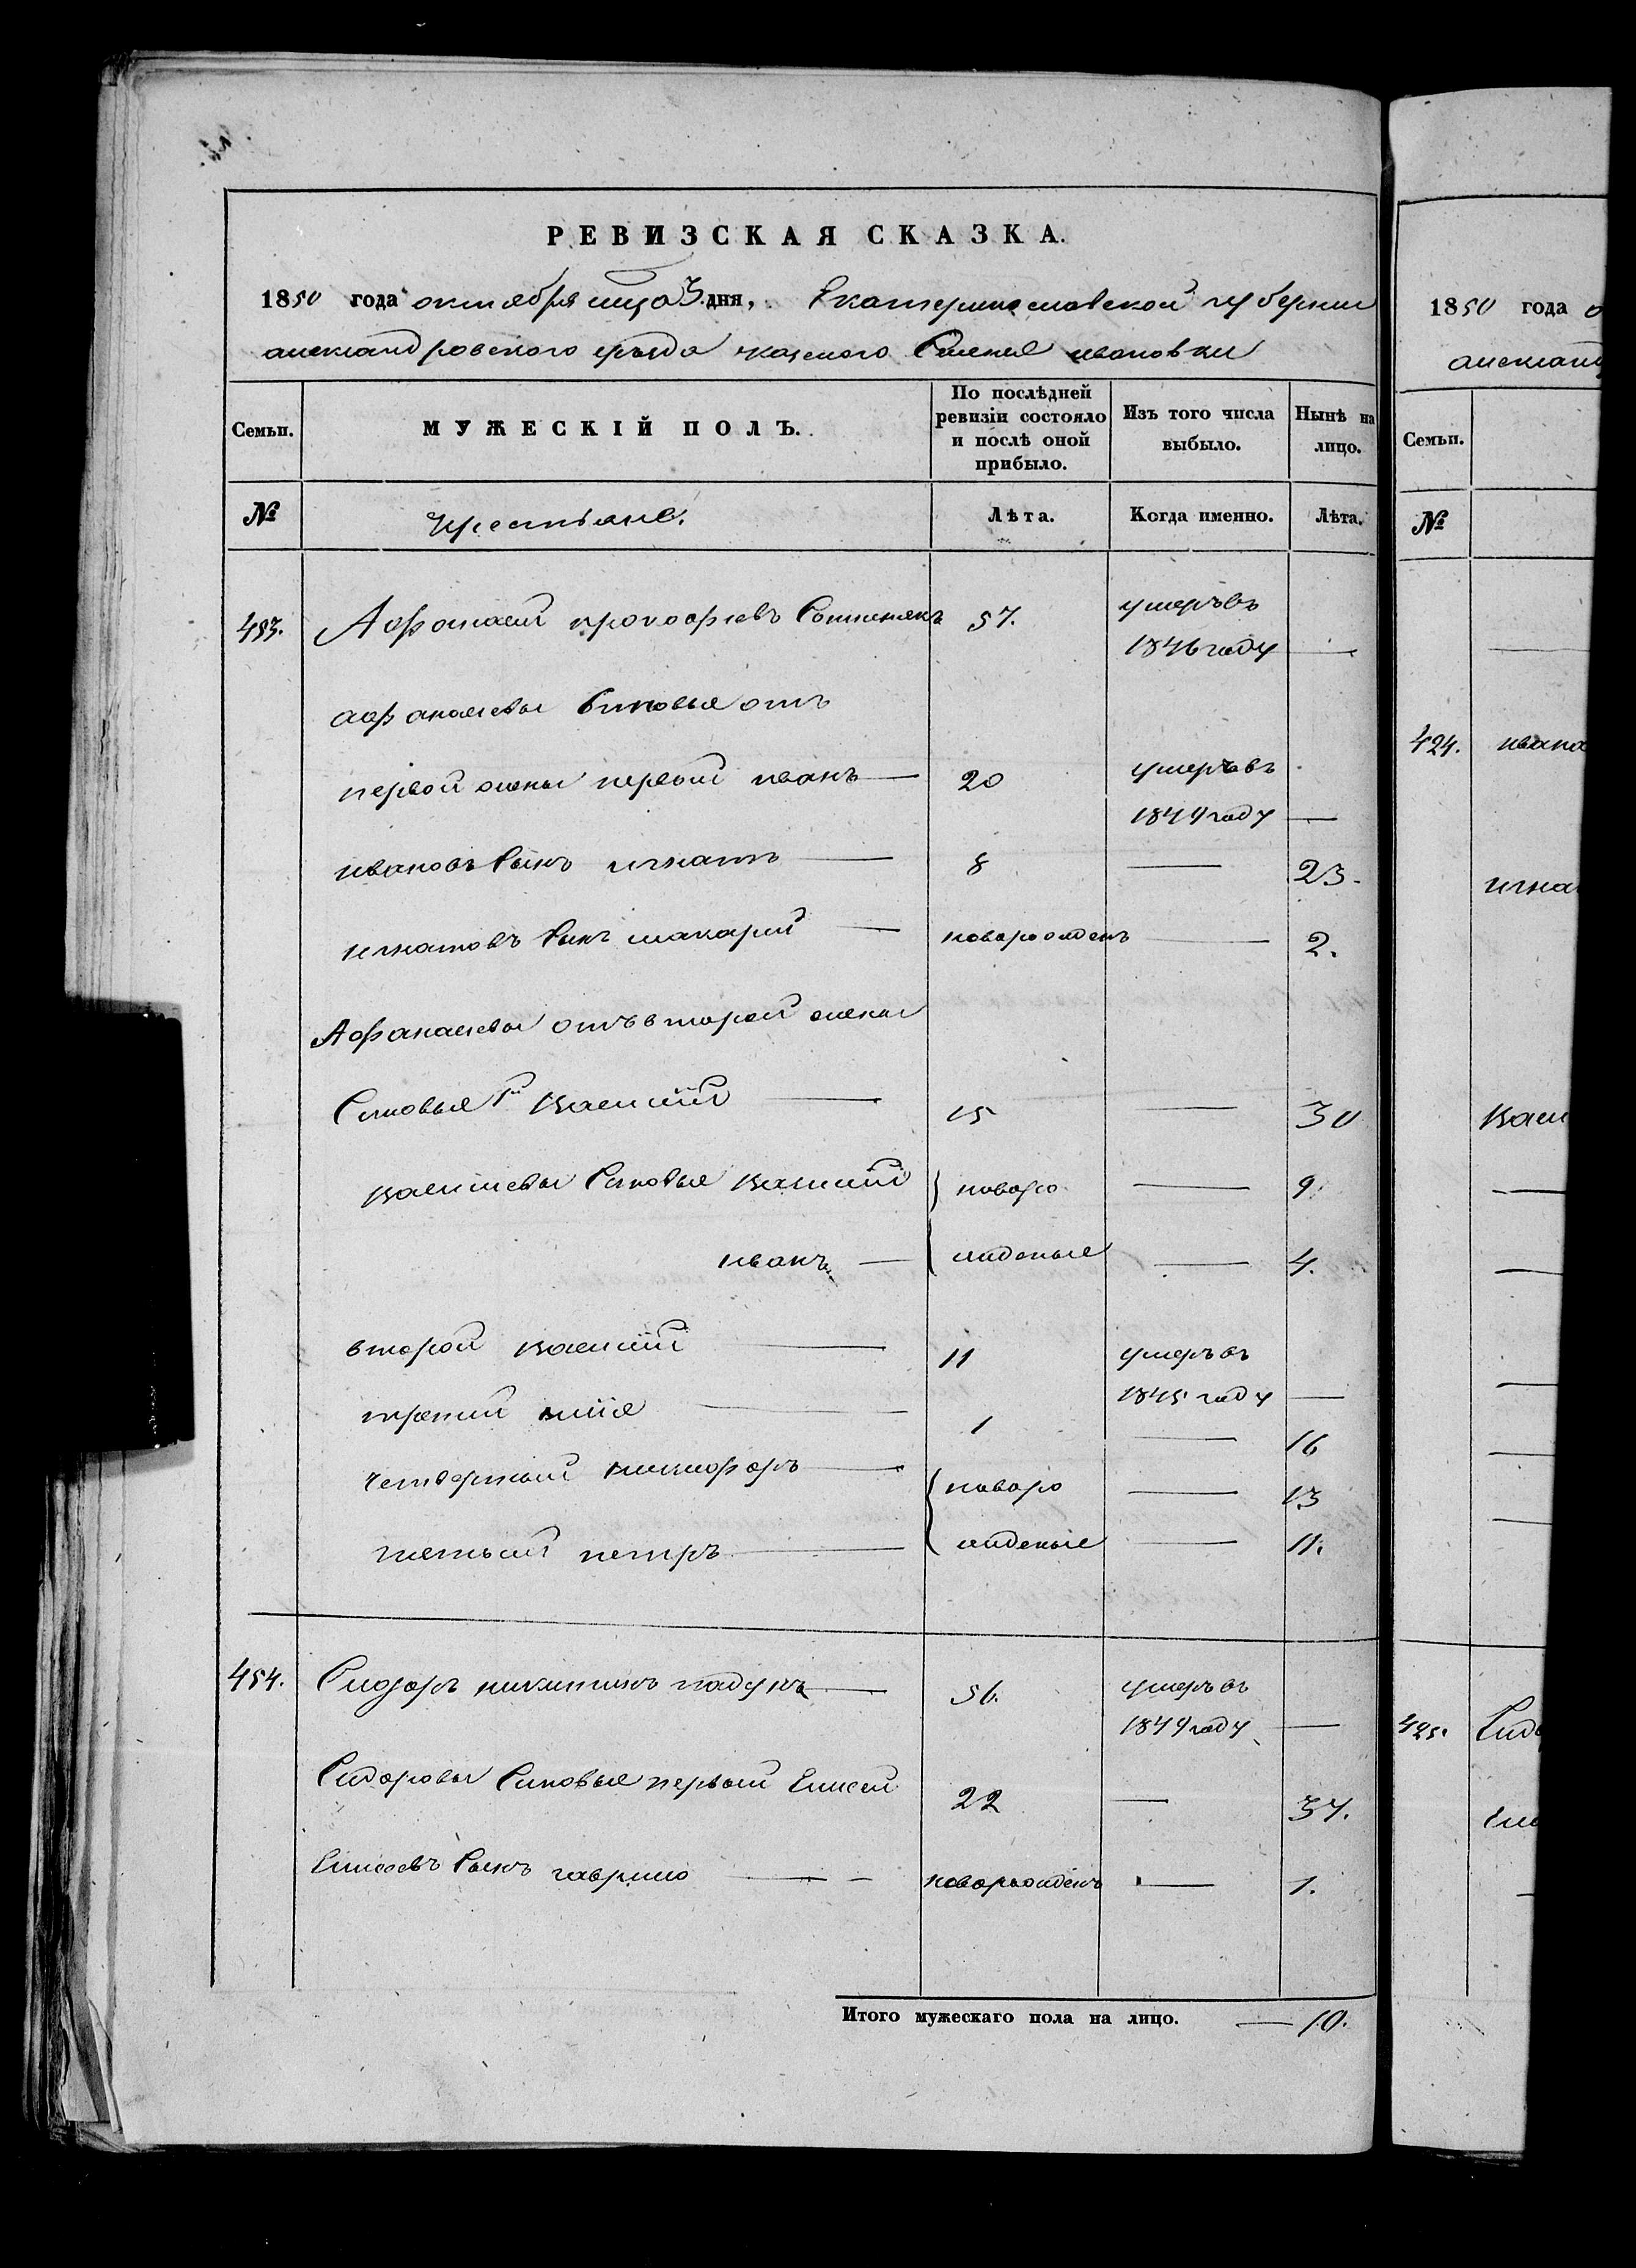 РЕВИЗСКАЯ СКАЗКА.
1850 года октября мца 3 дня, Екатеринославской губернии
александровского уезда казеного Селения ивановки
Семьи.
МУЖЕСКІЙ ПОЛЪ.
По послѣдней ревизіи состояло и послѣ оной прибыло.
Изъ того числа выбыло.
Нынѣ на лицо.
№
крестьяне.
Лѣта.
Когда именно.
Лѣта.
453. Афонасий прокофиевъ 57. умеръ въ
1846 году —
афанасиевы Сыновья отъ
первой жены первый иванъ — 20 умеръ въ
1849 году —
ивановъ Сынъ игнатъ — 8 — 23.
игнатовъ Сынъ макарий — новорожденъ — 2.
Афанасиевы отъ второй жены
Сыновья 1й василий — 15 — 30
василиевы Сыновья василий } новоро — 9
иванъ — { жденые — 4.
второй василий — 11 умеръ въ
1845 году —
третий — 1 — 16
четвертый никифоръ — { новоро — 13
пятый петръ — { жденые — 11.
454. Сидоръ никитинъ гладунъ — 56. умеръ въ
1849 году —
Сидоровы Сыновья первый Елисей 22 — 37.
Елисеевъ Сынъ гаврило — новорожденъ — 1.
Итого мужескаго пола на лицо. — 10.
1850 года о
александ
Семьи.
№
424. ивано
игна
васи
425. Сидо
ели